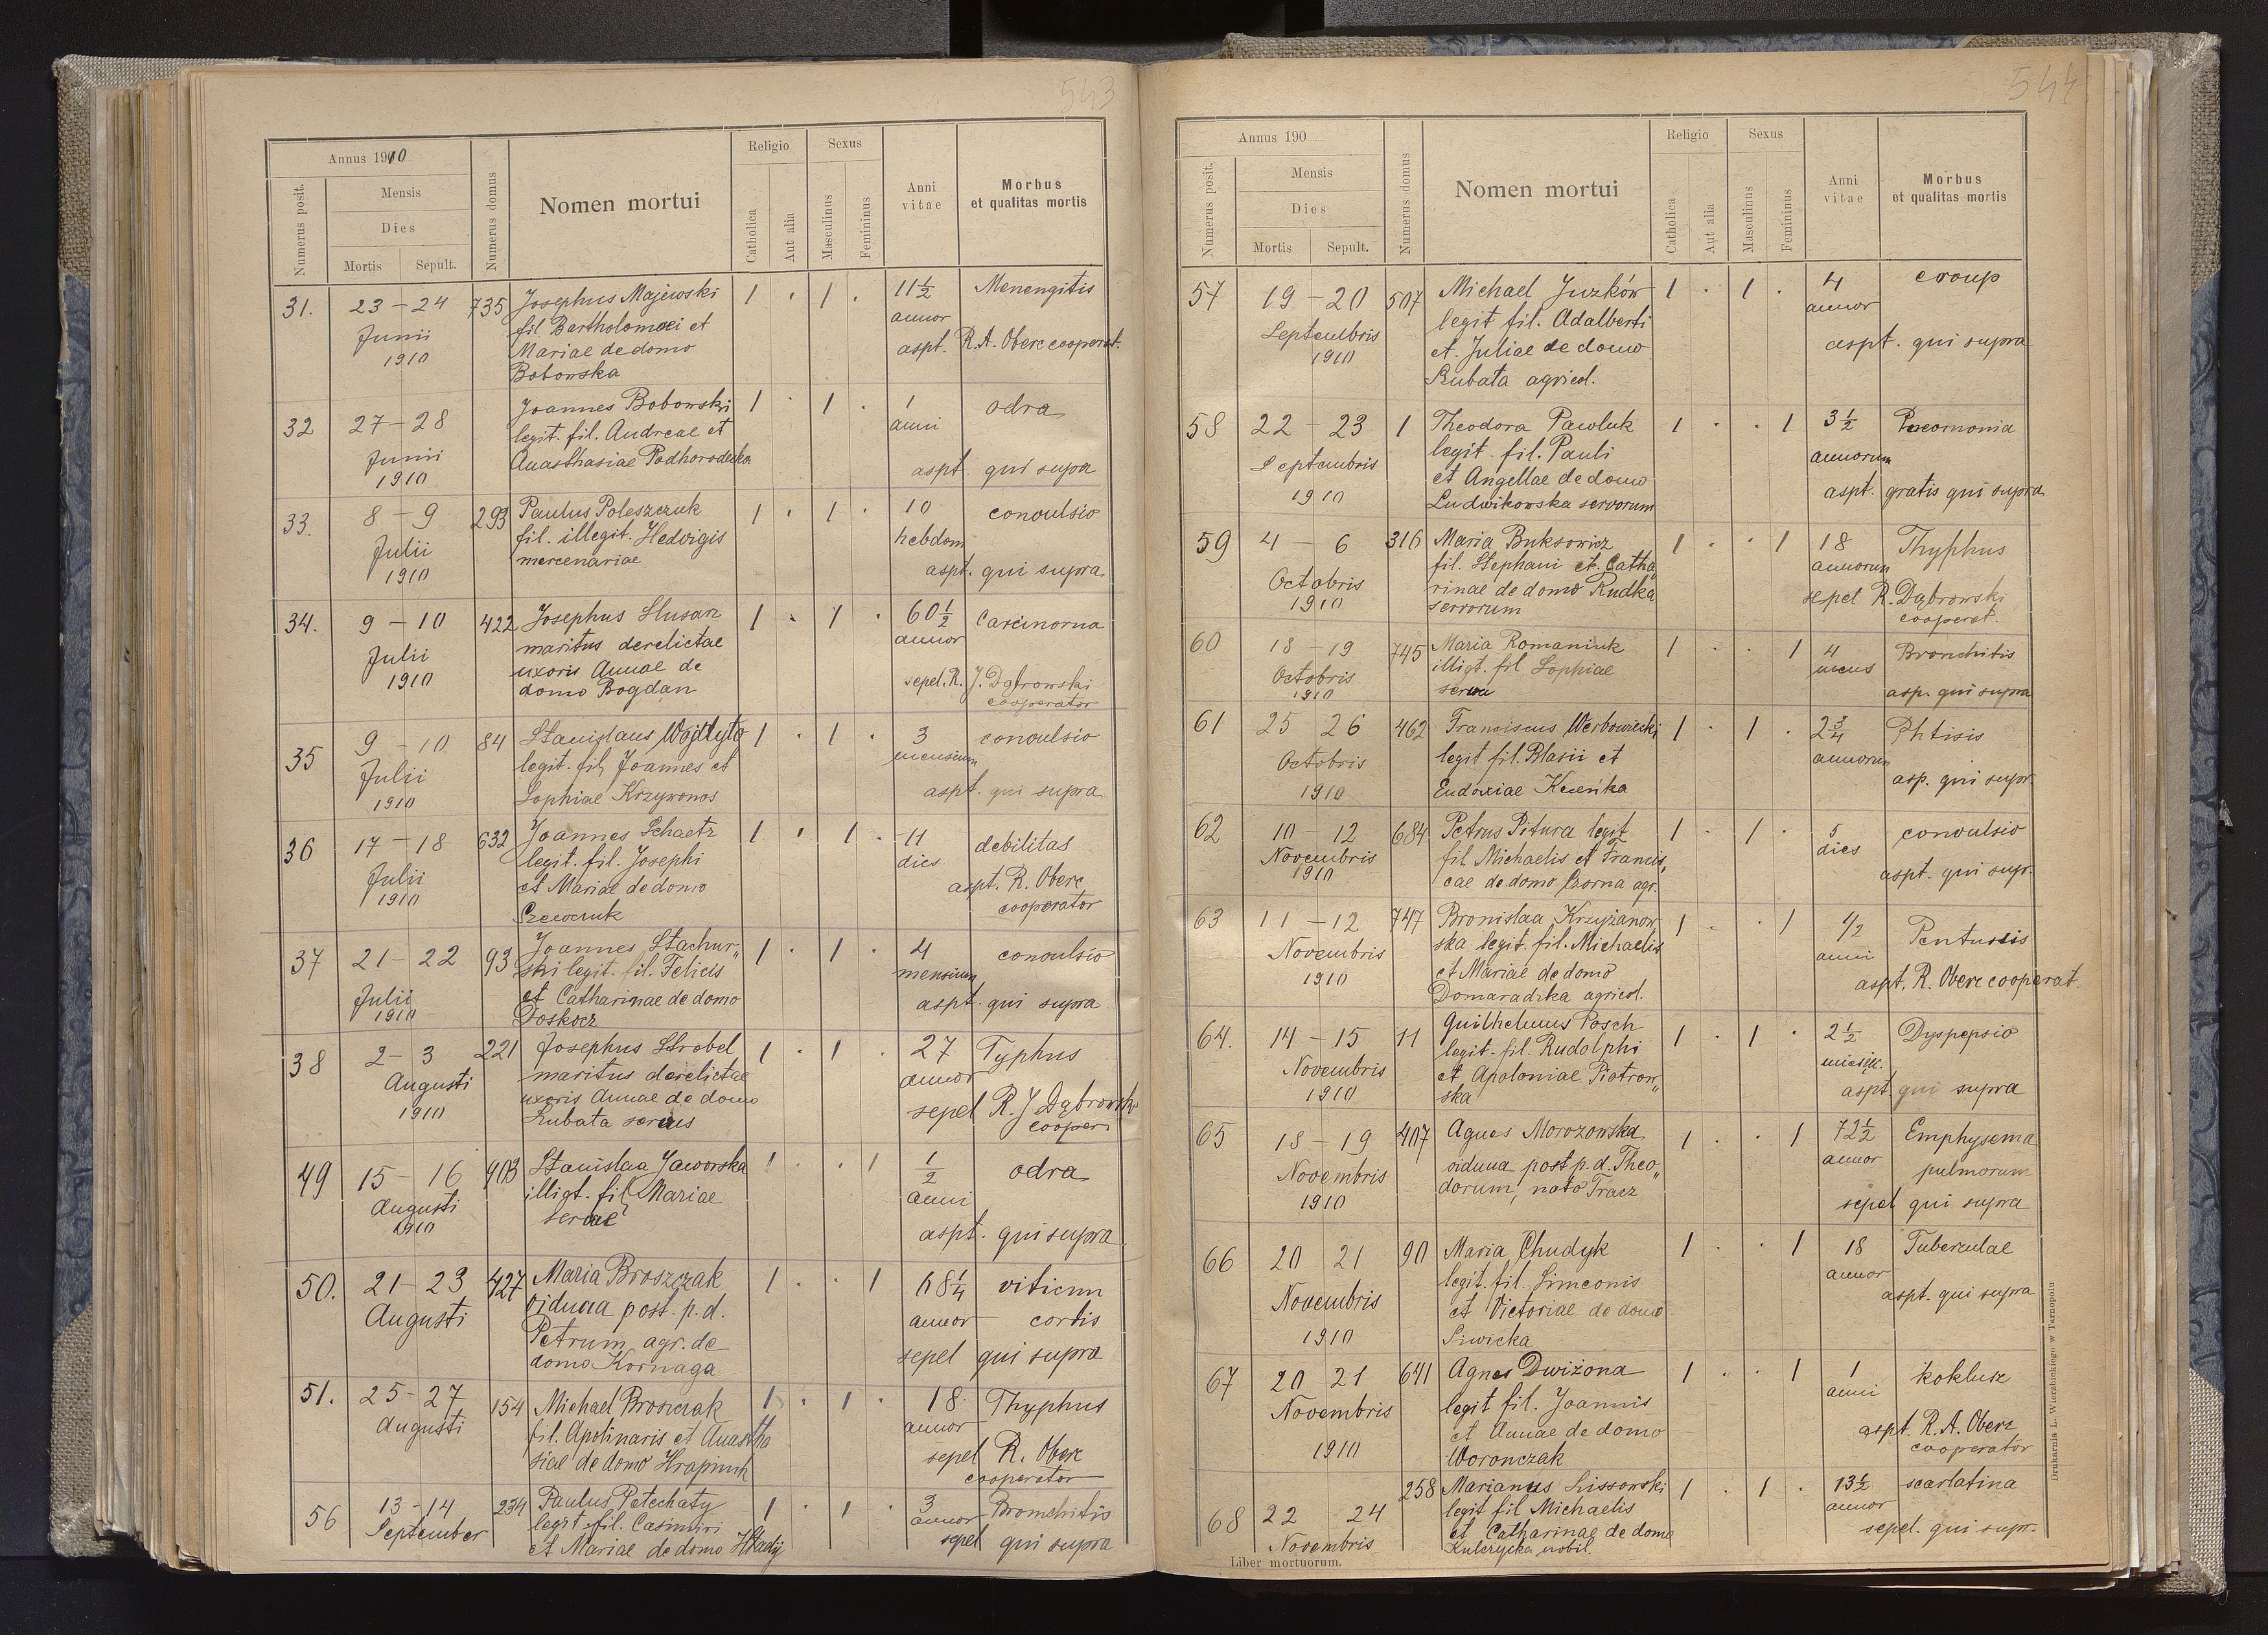 543
Annus 1910
Numerus posit.
Mensis
Dies
Mortis
Sepult.
Numerus domus
Nomen mortui
Religio
Catholica
Aut alia
Sexus
Masculinus
Femininus
Anni vitae
Morbus
et qualitas mortis
31. 23 - 24 735 Josephus Majewski 1 . 1 . 11 1/2 Menengitis
Junii fil Bartholomaei et annor
1910 Mariae de domo aspt. R. A. Oberc cooperat.
Bobowska
32 27 - 28 Joannes Bobowski 1 . 1 . 1 odra
Junii legit. fil. Andreae et anni
1910 Anasthasiae Podhorodecka aspt. qui supra
33. 8 - 9 293 Paulus Poleszczuk 1 . 1 . 10 convulsio
Julii fil. illegit. Hedvigis hebdom
1910 mercenariae aspt. qui supra
34. 9 - 10 422 Josephus Slusarz 1 . 1 . 60 1/2 Carcinoma
Julii maritus derelictae annor
1910 uxoris Annae de sepel. R. J. Dąbrowski
domo Bogdan cooperator
35 9 - 10 84 Stanislaus Wojtyto 1 . 1 . 3 convulsio
Julii legit. fil. Joannes et mensium
1910 Sophiae Krzywonos aspt. qui supra
36 17 - 18 632 Joannes Schaetz 1 . 1 . 11 debilitas
Julii legit. fil. Josephi dies
1910 et Mariae de domo aspt. R. Oberc
Szewczuk cooperator
37 21 - 22 93 Joannes Stachur„ 1 . 1 . 4 convulsio
Julii ski legit. fil. Felicis mensium
1910 et Catharinae de domo aspt. qui supra
Doskocz
38 2 - 3 221 Josephus Strobel 1 . 1 . 27 Typhus
Augusti maritus derelictae annor
1910 uxoris Annae de domo sepel R. J Dąbrowski
Kubata servus cooper.
49 15 - 16 403 Stanislaa Jaworska 1 . . 1 1/2 odra
Augusti illigt. fil Mariae anni
1910 servae aspt. qui supra
50. 21 - 23 427 Maria Broszczak 1 . . 1 68 1/4 viticum
Augusti viduaa post. p. d. annor cordis
Petrum agr. de sepel qui supra
domo Kornaga
51. 25 - 27 154 Michael Broszczak 1 . 1 . 18 Thyphus
Augusti fil. Apolinaris et Anastha annor
siae de domo Hrapiuk sepel R. Oberc
cooperator
56 13 - 14 234 Paulus Petechaty 1 . 1 . 3 Bronchitis
September legit. fil. Casimiri annor
et Mariae de domo Hkadij sepel qui supra
544
Annus 190
Numerus posit.
Mensis
Dies
Mortis
Sepult.
Numerus domus
Nomen mortui
Religio
Catholica
Aut alia
Sexus
Masculinus
Femininus
Anni vitae
Morbus
et qualitas mortis
57 19 - 20 507 Michael Juzków 1 . 1 . 4 croup
Septembris legit fil. Adalberti annor
1910 et Juliae de domo aspt. qui supra
Kubata agricol.
58 22 - 23 1 Theodora Pawluk 1 . . 1 3 1/2 Pneomonia
Septembris legit. fil. Pauli annorum
1910 et Angellae de domo aspt. gratis qui supra
Ludwikowska servorum
59 4 - 6 316 Maria Buksowicz 1 . . 1 18 Thyphus
Octobris fil. Stephani et Catha„ annorum
1910 rinae de domo Rudka sepel R. Dąbrowski
servorum cooperat.
60 18 - 19 745 Maria Romaniuk 1 . . 1 4 Bronchitis
Octobris illigt. fil Sophiae mens
1910 serva asp. qui supra
61 25 - 26 462 Franciscus Werbowiecki 1 . 1 . 2 3/4 Phtisis
Octobris legit fil. Blasii et annorum
1910 Eudoxiae asp. qui supr.
62 10 - 12 684 Petrus Pitura legit 1 . 1 . 5 convulsio
Novembris fil Michaelis et Francis„ dies
1910 cae de domo Czorna agr. aspt. qui supr.
63 11 - 12 747 Bronislaa Krzyżanow 1 . . 1 1/2 Pentussis
Novembris ska legit. fil. Michaelis anni
1910 et Mariae de domo aspt. R. Oberc cooperat.
Domaradzka agricol.
64. 14 - 15 11 Guilhelmus Posch 1 . 1 . 2 1/2 Dyspepsio
Novembris legit. fil. Rudolphi miesięc.
1910 et Apoloniae Piotrow„ aspt qui supra
ska
65 18 - 19 407 Agnes Morozowska 1 . . 1 72 1/2 Emphysema
Novembris vidua post p. d. Theo„ annor pulmorum
1910 dorum, nato Tracz sepel qui supra
66 20 21 90 Maria Chudyk 1 . . 1 18 Tuberculae
Novembris legit. fil. Simeonis annor
1910 et Victoriae de domo aspt. qui supra
Siwicka
67 20 21 641 Agnes Dwiżona 1 . . 1 1 koklusz
Novembris legit fil. Joannis anni
1910 et Annae de domo aspt. R. A. Oberc
Woronczak cooperator
68 22 24 258 Marianus Lissowski 1 . 1 . 13 1/2 scarlatina
Novembris legit fil Michaelis annor
et Catharinae de domo sepel. qui supr.
Kulczycka nobil.
Liber mortuorum.
Drukarnia L. Wierzbickiego w Tarnopolu